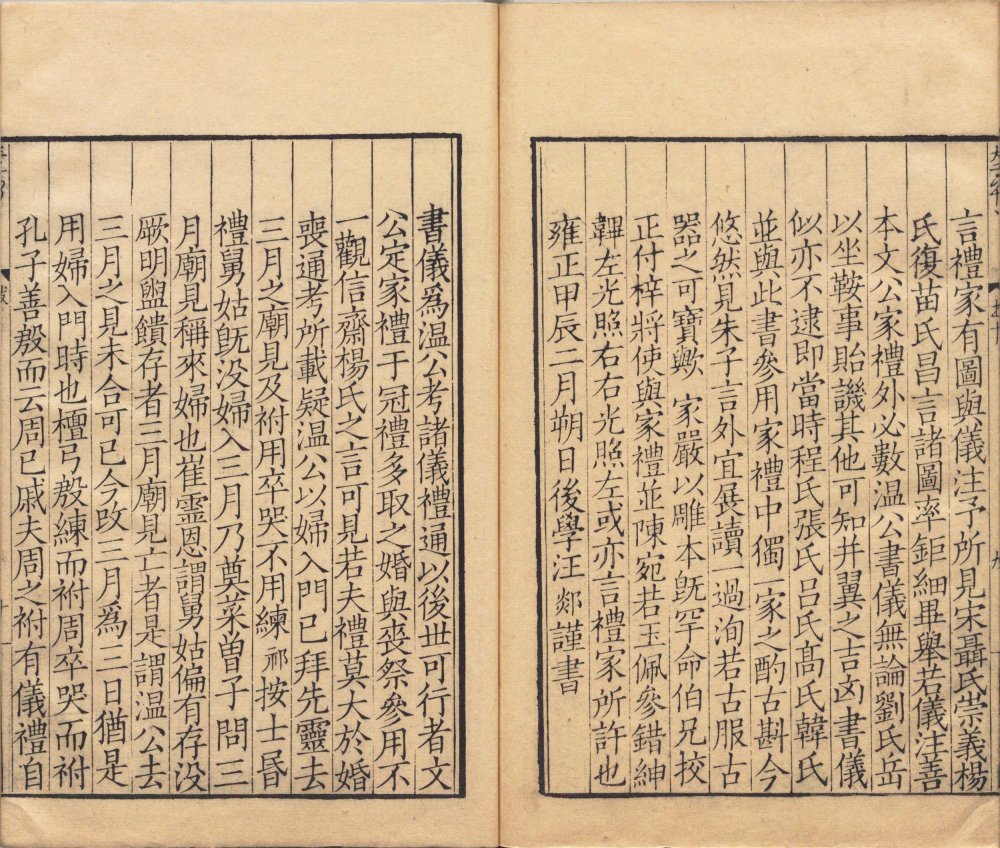 言禮家有圖與儀注予所見宋聶氏崇義楊
氏復苗氏昌言諸圖率鉅細畢舉若儀注善
本文公家禮外必數温公書儀無論劉氏岳
以坐鞍事貽譏其他可知并翼之吉凶書儀
似亦不逮即當時程氏張氏吕氏髙氏韓氏
並與此書參用家禮中獨一家之酌古斟今
悠然見朱子言外宜展讀一過洵若古服古
器之可寶歟 家嚴以雕本旣罕命伯兄挍
正付梓將使與家禮並陳宛若玉佩參錯紳
韠左光照右右光照左或亦言禮家所許也
雍正甲辰二月朔日後學汪郯謹書
書儀爲温公考諸儀禮通以後世可行者文
公定家禮于冠禮多取之婚與喪祭參用不
一觀信齋楊氏之言可見若夫禮莫大於婚
喪通考所載疑温公以婦入門已拜先靈去
三月之廟見及祔用卒哭不用練 祁按士昏
禮舅姑旣没婦入三月乃奠菜曾子問三
月廟見稱來婦也崔靈恩謂舅姑偏有存没
厥明盥饋存者三月廟見亡者是謂温公去
三月之見未合可已今改三月爲三日猶是
用婦入門時也檀弓殷練而祔周卒哭而祔
孔子善殷而云周已戚夫周之祔有儀禮自